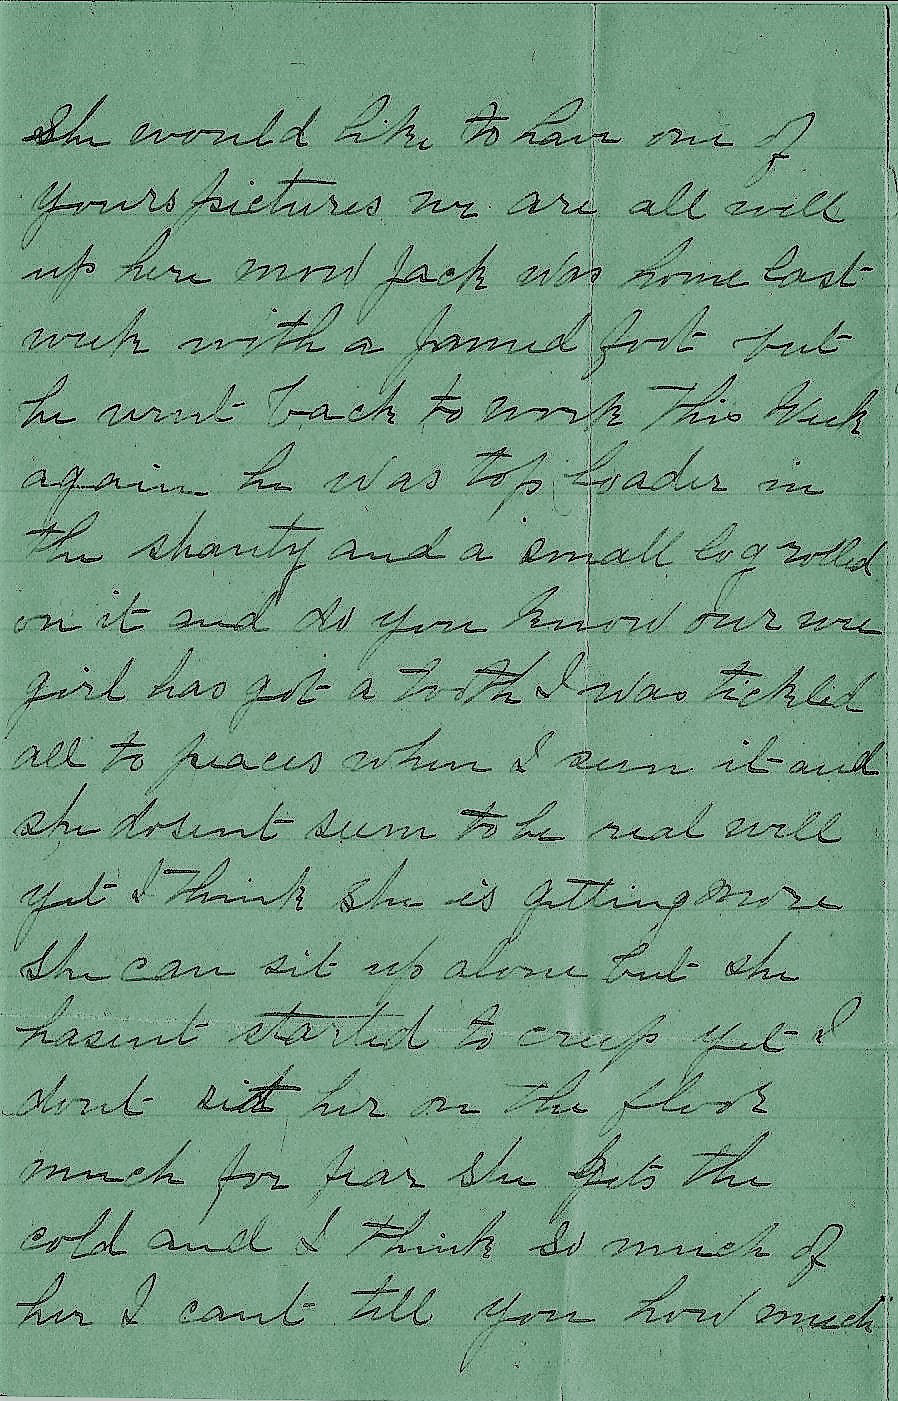 She would like to have one of
yours pictures we are all well
up here now Jack was home last
week with a jamed foot but
he went back to work this week
again he was top loader in
the shanty and a small log rolled
on it and do you know our wee
girl has got a tooth I was tickled
all to peaces when I seen it and
she dosent seem to be real well
yet I think she is getting more
She can sit up alone but she
hasent started to creep yet I
dont sitt her on the floor
much for fear she gets the
cold and I think so much of
her I cant tell you how much